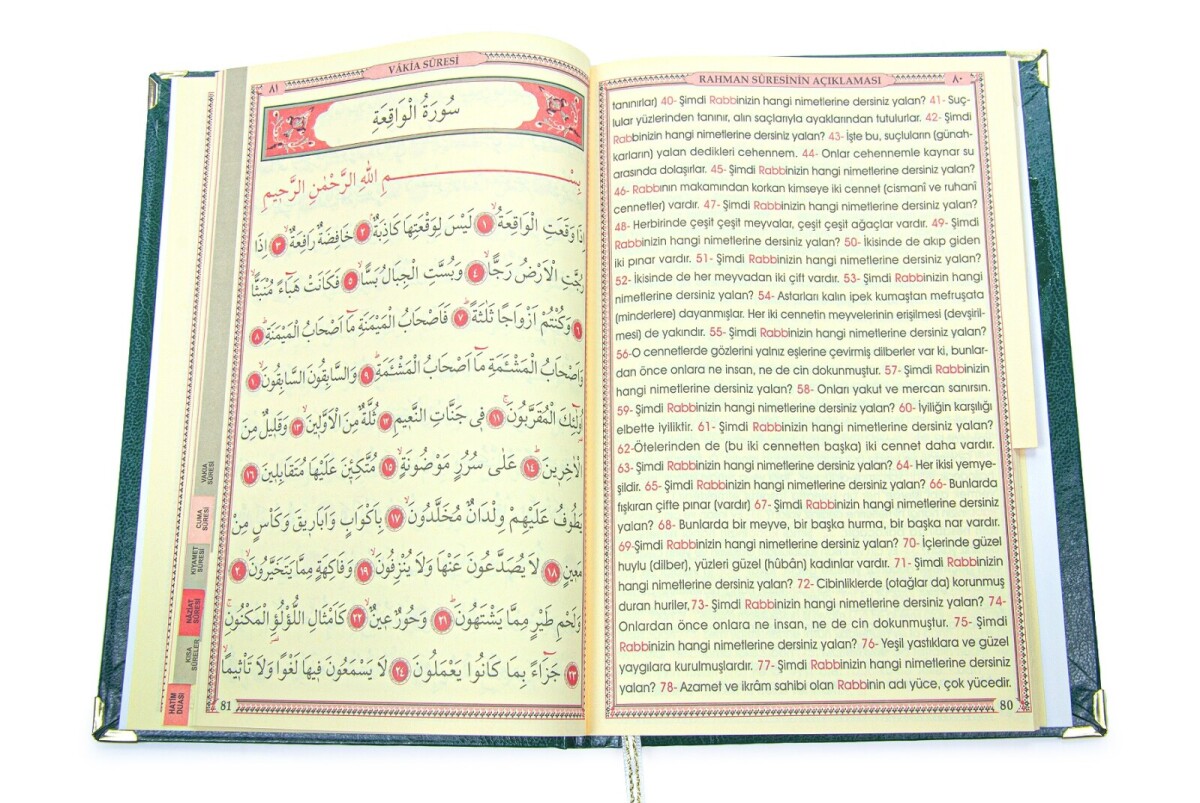 RAHMAN SÛRESİNİN AÇIKLAMASI
٨٠
tanınırlar) 40- Şimdi Rabbinizin hangi nimetlerine dersiniz yalan? 41- Suç-
lular yüzlerinden tanınır, alın saçlarıyla ayaklarından tutulurlar. 42- Şimdi
Rabbinizin hangi nimetlerine dersiniz yalan? 43- İşte bu, suçluların (günah-
karların) yalan dedikleri cehennem. 44- Onlar cehennemle kaynar su
arasında dolaşırlar. 45- Şimdi Rabbinizin hangi nimetlerine dersiniz yalan?
46- Rabbının makamından korkan kimseye iki cennet (cismanî ve ruhanî
cennetler) vardır. 47- Şimdi Rabbinizin hangi nimetlerine dersiniz yalan?
48- Herbirinde çeşit çeşit meyvalar, çeşit çeşit ağaçlar vardır. 49- Şimdi
Rabbinizin hangi nimetlerine dersiniz yalan? 50- İkisinde de akıp giden
iki pınar vardır. 51- Şimdi Rabbinizin hangi nimetlerine dersiniz yalan?
52- İkisinde de her meyvadan iki çift vardır. 53- Şimdi Rabbinizin hangi
nimetlerine dersiniz yalan? 54- Astarları kalın ipek kumaştan mefruşata
(minderlere) dayanmışlar. Her iki cennetin meyvelerinin erişilmesi (devşiril-
mesi) de yakındır. 55- Şimdi Rabbinizin hangi nimetlerine dersiniz yalan?
56-O cennetlerde gözlerini yalnız eşlerine çevirmiş dilberler var ki, bunlar-
dan önce onlara ne insan, ne de cin dokunmuştur. 57- Şimdi Rabbinizin
hangi nimetlerine dersiniz yalan? 58- Onları yakut ve mercan sanırsın.
59- Şimdi Rabbinizin hangi nimetlerine dersiniz yalan? 60- İyiliğin karşılığı
elbette iyiliktir. 61- Şimdi Rabbinizin hangi nimetlerine dersiniz yalan?
62-Ötelerinden de (bu iki cennetten başka) iki cennet daha vardır.
63- Şimdi Rabbinizin hangi nimetlerine dersiniz yalan? 64- Her ikisi yemye-
şildir. 65- Şimdi Rabbinizin hangi nimetlerine dersiniz yalan? 66- Bunlarda
fışkıran çifte pınar (vardır) 67- Şimdi Rabbinizin hangi nimetlerine dersiniz
yalan? 68- Bunlarda bir meyve, bir başka hurma, bir başka nar vardır.
69-Şimdi Rabbinizin hangi nimetlerine dersiniz yalan? 70- İçlerinde güzel
huylu (dilber), yüzleri güzel (hûbân) kadınlar vardır. 71- Şimdi Rabbinizin
hangi nimetlerine dersiniz yalan? 72- Cibinliklerde (otağlar da) korunmuş
duran huriler,73- Şimdi Rabbinizin hangi nimetlerine dersiniz yalan? 74-
Onlardan önce onlara ne insan, ne de cin dokunmuştur. 75- Şimdi
Rabbinizin hangi nimetlerine dersiniz yalan? 76- Yeşil yastıklara ve güzel
yaygılara kurulmuşlardır. 77- Şimdi Rabbinizin hangi nimetlerine dersiniz
yalan? 78- Azamet ve ikrâm sahibi olan Rabbinin adı yüce, çok yücedir.
80
VÂKIA SÛRESİ
٨١
سُورَةُ الْوَاقِعَةِ
بِسْمِ اللّٰهِ الرَّحْمٰنِ الرَّحِيمِ
اِذَا وَقَعَتِ الْوَاقِعَةُ ﴿١﴾ لَيْسَ لِوَقْعَتِهَا كَاذِبَةٌ ﴿٢﴾ خَافِضَةٌ رَافِعَةٌ ﴿٣﴾ اِذَا
رُجَّتِ الْاَرْضُ رَجًّا ﴿٤﴾ وَبُسَّتِ الْجِبَالُ بَسًّا ﴿٥﴾ فَكَانَتْ هَبَاءً مُنْبَثًّا
﴿٦﴾ وَكُنْتُمْ اَزْوَاجًا ثَلٰثَةً ﴿٧﴾ فَاَصْحَابُ الْمَيْمَنَةِ مَا اَصْحَابُ الْمَيْمَنَةِ ﴿٨﴾
وَاَصْحَابُ الْمَشْـَٔمَةِ مَا اَصْحَابُ الْمَشْـَٔمَةِ ﴿٩﴾ وَالسَّابِقُونَ السَّابِقُونَ ﴿١٠﴾
اُولٰئِكَ الْمُقَرَّبُونَ ﴿١١﴾ فِى جَنَّاتِ النَّعِيمِ ﴿١٢﴾ ثُلَّةٌ مِنَ الْاَوَّلِينَ ﴿١٣﴾ وَقَلِيلٌ مِنَ
الْاٰخِرِينَ ﴿١٤﴾ عَلٰى سُرُرٍ مَوْضُونَةٍ ﴿١٥﴾ مُتَّكِـِٔينَ عَلَيْهَا مُتَقَابِلِينَ ﴿١٦﴾
يَطُوفُ عَلَيْهِمْ وِلْدَانٌ مُخَلَّدُونَ ﴿١٧﴾ بِاَكْوَابٍ وَاَبَارِيقَ وَكَأْسٍ مِنْ
مَعِينٍ ﴿١٨﴾ لَا يُصَدَّعُونَ عَنْهَا وَلَا يُنْزِفُونَ ﴿١٩﴾ وَفَاكِهَةٍ مِمَّا يَتَخَيَّرُونَ ﴿٢٠﴾
وَلَحْمِ طَيْرٍ مِمَّا يَشْتَهُونَ ﴿٢١﴾ وَحُورٌ عِينٌ ﴿٢٢﴾ كَاَمْثَالِ اللُّؤْلُؤِ الْمَكْنُونِ
﴿٢٣﴾ جَزَاءً بِمَا كَانُوا يَعْمَلُونَ ﴿٢٤﴾ لَا يَسْمَعُونَ فِيهَا لَغْوًا وَلَا تَأْثِيمًا
81
VAKIA
SÛRESİ
CUMA
SÛRESİ
KIYAMET
SÛRESİ
NÂZİAT
SÛRESİ
KISA
SÛRELER
HATİM
DUASI